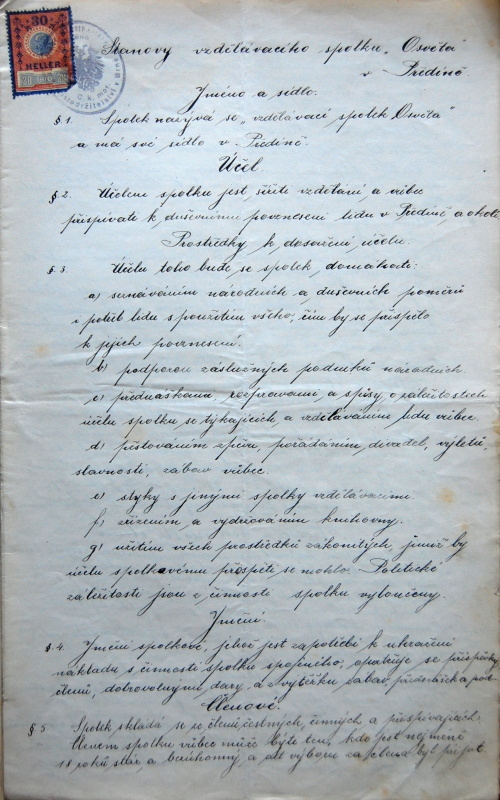 30
HELLER
Stanovy vzdělávacího spolku „Osvěta“
v Předíně
Jméno a sídlo:
§ 1. Spolek nazývá se „vzdělávací spolek Osvěta“
a má své sídlo v Předíně.
Účel.
§ 2. Účelem spolku jest, šířiti vzdělání, a vůbec
přispívati k duševnímu povznesení lidu v Předíně, a okolí
Prostředky k dosažení účelu.
§ 3. Účelu toho bude se spolek domáhati:
a) seznáváním národních a duševních poměrů
i potřeb lidu s použitím všeho, čím by se přispělo
k jejich povznesení.
b) podporou záslužných podniků národních.
c) přednáškami, rozpravami, a spisy, o záležitostech
účelu spolku se týkajících, a vzděláváním lidu vůbec.
d) pěstováním zpěvu, pořádáním, divadel, výletů,
slavností, zábav vůbec.
e) styky s jinými spolky vzdělávacími
f) zřízením, a vydržováním knihovny.
g) užitím všech prostředků zákonitých, jimiž by
účelu spolkovému prospěti, se mohlo. Politické
záležitosti jsou z činnosti spolku vyloučeny.
Jmění
§ 4. Jmění spolkové, jehož jest zapotřebí k uhražení
nákladu s činností spolku spojeného, opatřuje se příspěvky
členů, dobrovolnými dary, a z výtěžku zábav přednášek a pod.
Členové.
§ 5 Spolek skládá se ze členů čestných, činných a přispívajících.
Členem spolku vůbec může býti ten, kdo jest nejméně
18 roků stár a bezúhonný, a od výboru za člena byl přijat.